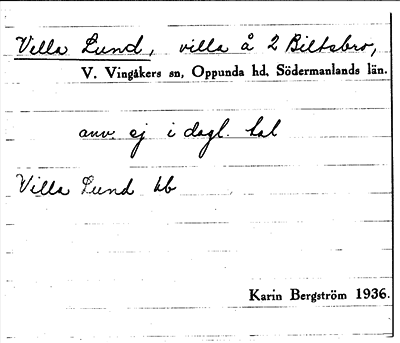 Villa Lund, villa å 2 Biltsbro,
V. Vingåkers sn, Oppunda hd, Södermanlands län.
anv. ej i dagl. tal
Villa Lund hb
Karin Bergström 1936.